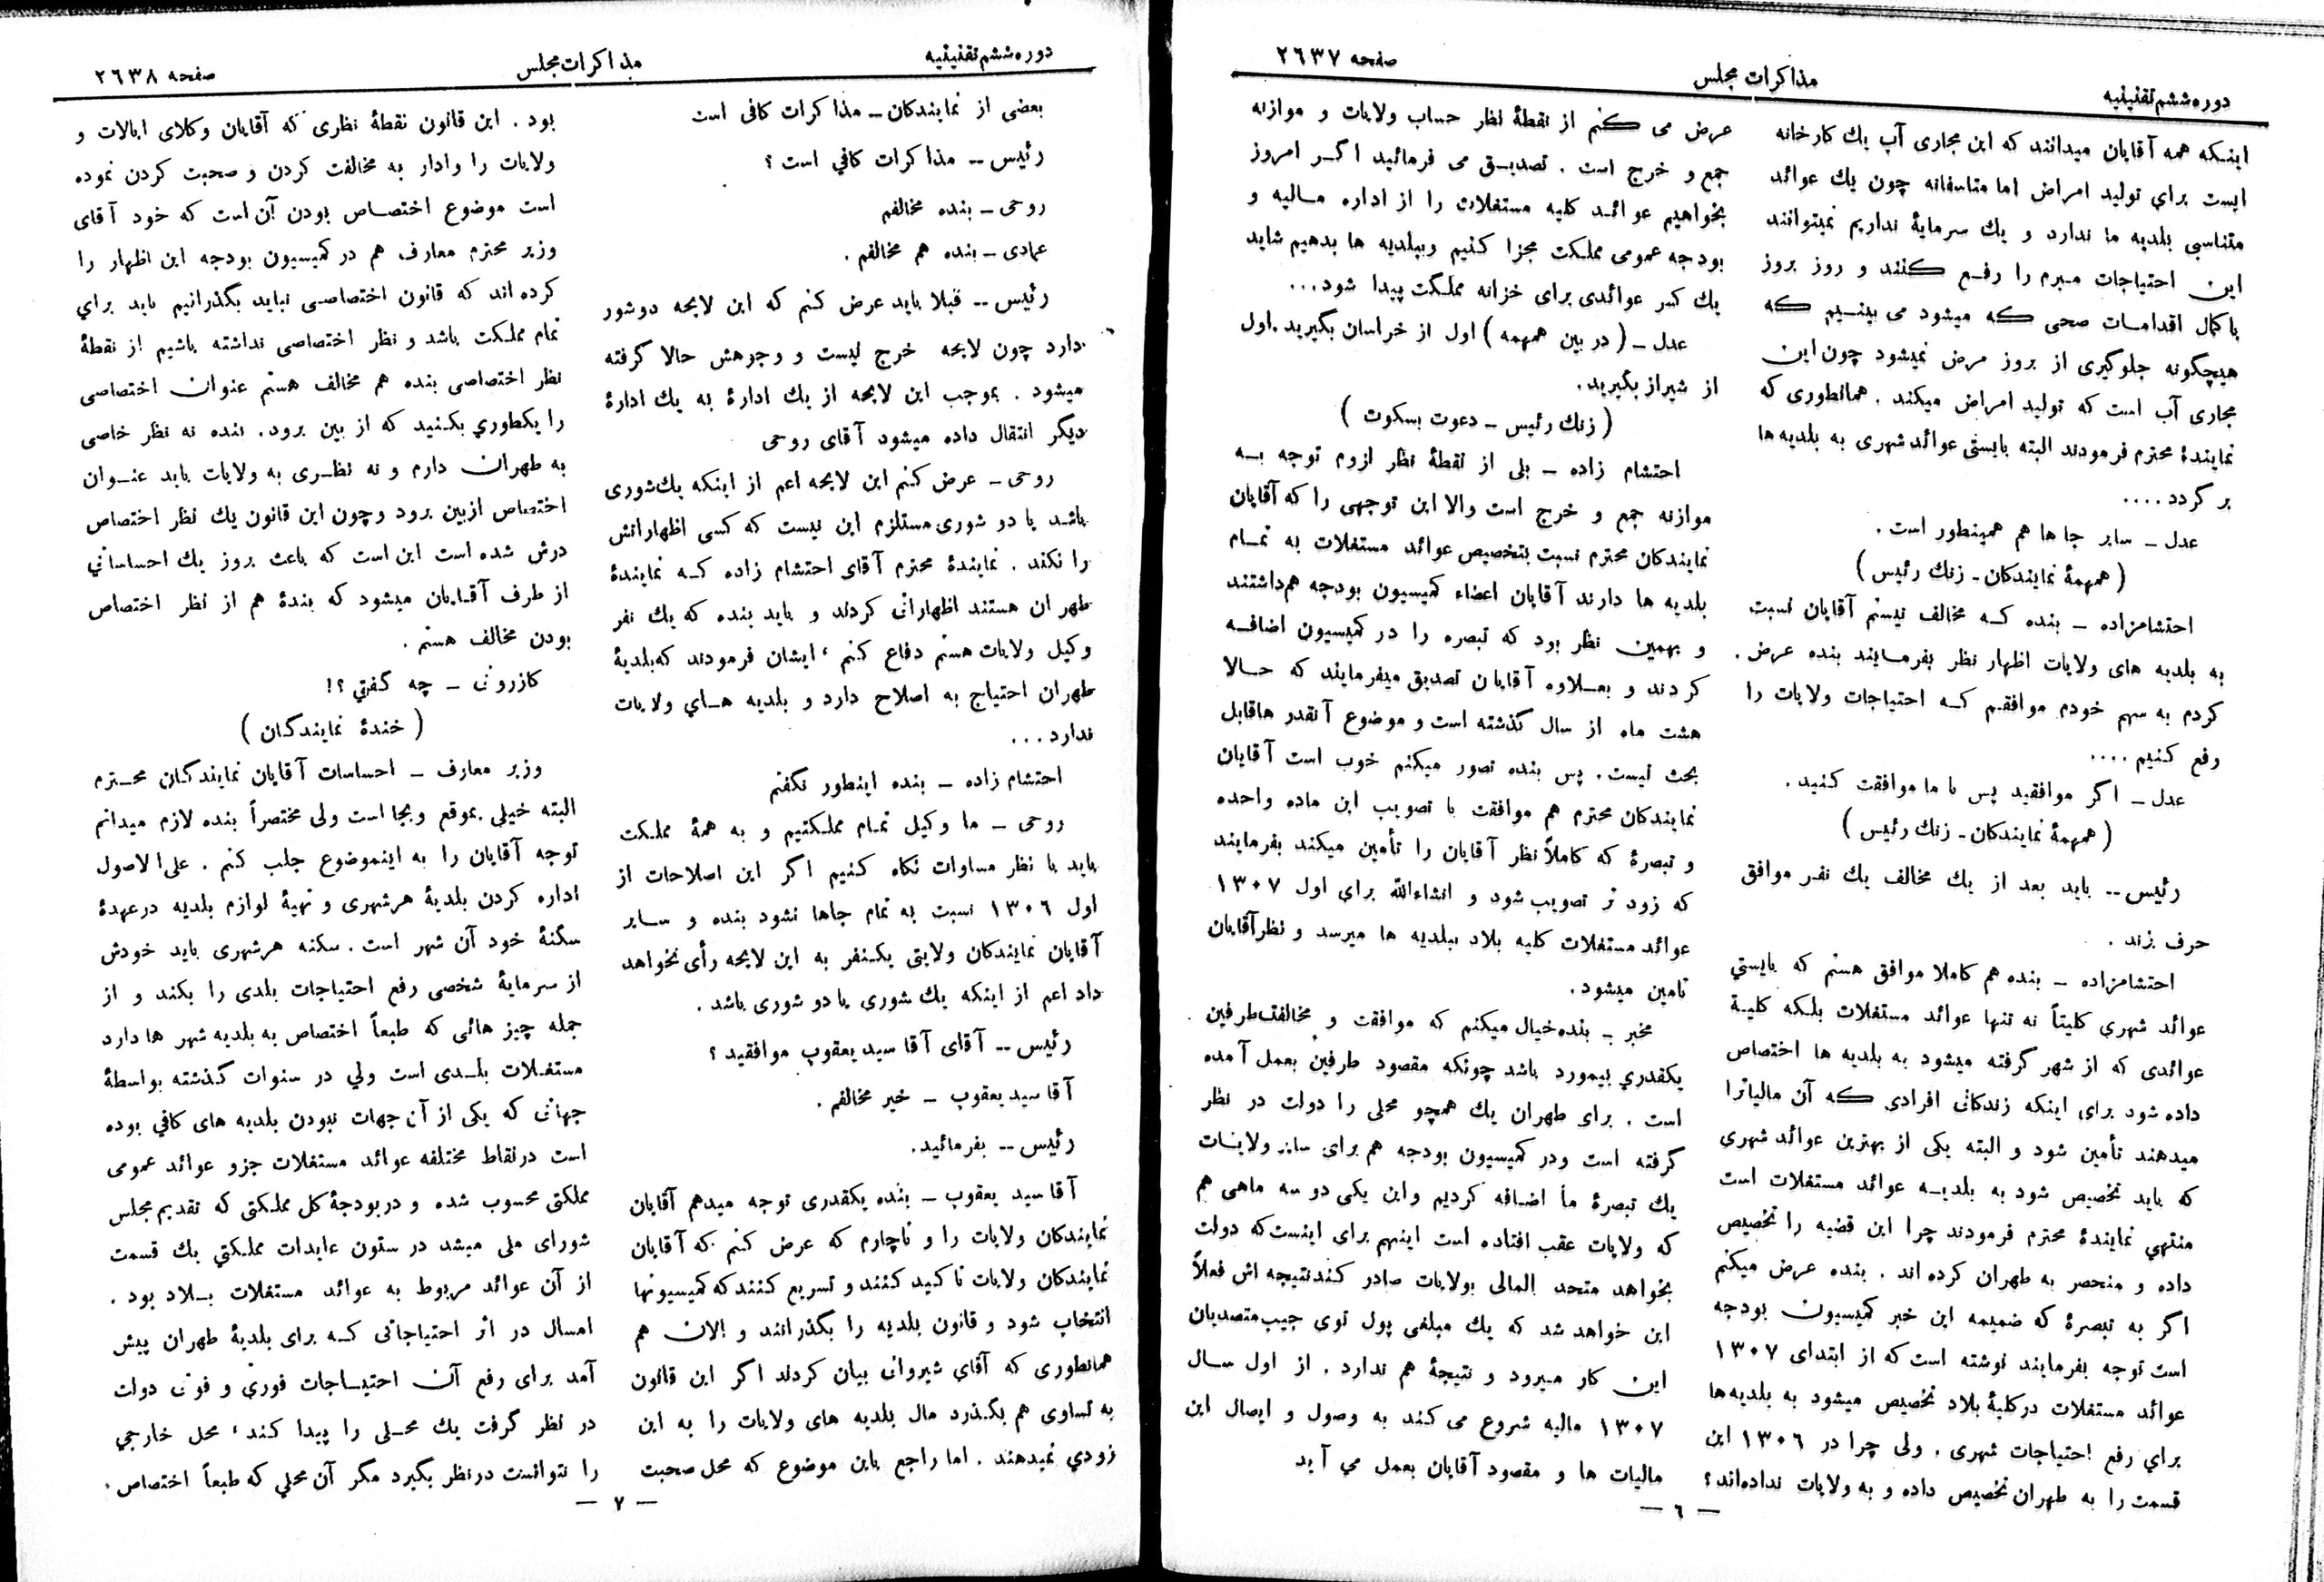 دوره ششم تقنینیه
مذاکرات مجلس
صفحه ۲٦۳۷
اینکه همه آقایان میدانند که این مجاری آب یك کارخانه
ایست برای تولید امراض اما متاسفانه چون یك عوائد
متناسبی بلدیه ما ندارد و یك سرمایهٔ نداریم نمیتوانند
این احتیاجات مبرم را رفع کنند و روز بروز
باکمال اقدامات صحی که میشود می بینیم که
هیچگونه جلوگیری از بروز مرض نمیشود چون این
مجاری آب است که تولید امراض میکند . همانطوری که
نمایندهٔ محترم فرمودند البته بایستی عوائد شهری به بلدیه‌ها
بر گردد ....
عدل ـ سایر جا ها هم همینطور است .
( همهمهٔ نمایندکان ـ زنك رئیس )
احتشامزاده ـ بنده که مخالف نیستم آقایان نسبت
به بلدیه های ولایات اظهار نظر بفرمایند بنده عرض .
کردم به سهم خودم موافقم که احتیاجات ولایات را
رفع کنیم ....
عدل ـ اگر موافقید پس با ما موافقت کنید .
( همهمهٔ نمایندکان ـ زنك رئیس )
رئیس -- باید بعد از یك مخالف یك نفر موافق
حرف بزند .
احتشامزاده ـ بنده هم کاملا موافق هستم که بایستی
عوائد شهری کلیتاً نه تنها عوائد مستغلات بلکه کلیهٔ
عوائدی که از شهر گرفته میشود به بلدیه ها اختصاص
داده شود برای اینکه زندکانی افرادی که آن مالیاترا
میدهند تأمین شود و البته یکی از بهترین عوائد شهری
که باید تخصیص شود به بلدیه عوائد مستغلات است
منتهی نمایندهٔ محترم فرمودند چرا این قضیه را تخصیص
داده و منحصر به طهران کرده اند . بنده عرض میکنم
اگر به تبصرهٔ که ضمیمه این خبر کمیسیون بودجه
است توجه بفرمایند نوشته است که از ابتدای ۱۳۰۷
عوائد مستغلات درکلیهٔ بلاد تخصیص میشود به بلدیه‌ها
برای رفع احتیاجات شهری . ولی چرا در ۱۳۰٦ این
قسمت را به طهران تخصیص داده و به ولایات نداده‌اند؟
عرض می کنم از نقطهٔ نظر حساب ولایات و موازنه
جمع و خرج است . تصدیق می فرمائید اگر امروز
بخواهیم عوائد کلیه مستغلات را از اداره مالیه و
بودجه عمومی مملکت مجزا کنیم وببلدیه ها بدهیم شاید
یك کسر عوائدی برای خزانه مملکت پیدا شود...
عدل ـ ( در بین همهمه ) اول از خراسان بگیرید . اول
از شیراز بگیرید .
( زنك رئیس ـ دعوت بسکوت )
احتشام زاده ـ بلی از نقطهٔ نظر لزوم توجه به
موازنه جمع و خرج است والا این توجهی را که آقایان
نمایندکان محترم نسبت بتخصیص عوائد مستغلات به تمام
بلدیه ها دارند آقایان اعضاء کمیسیون بودجه هم‌داشتند
و بهمین نظر بود که تبصره را در کمیسیون اضافه
کردند و بعلاوه آقایان تصدیق میفرمایند که حالا
هشت ماه از سال گذشته است و موضوع آنقدر هاقابل
بحث نیست . پس بنده تصور میکنم خوب است آقایان
نمایندکان محترم هم موافقت با تصویب این ماده واحده
و تبصرهٔ که کاملاً نظر آقایان را تأمین میکند بفرمایند
که زود تر تصویب شود و انشاءالله برای اول ۱۳۰۷
عوائد مستغلات کلیه بلاد ببلدیه ها میرسد و نظرآقایان
تامین میشود.
مخبر ـ بنده‌خیال میکنم که موافقت و مخالفت‌طرفین
یکقدری بیمورد باشد چونکه مقصود طرفین بعمل آمده
است . برای طهران یك همچو محلی را دولت در نظر
گرفته است ودر کمیسیون بودجه هم برای سایر ولایات
یك تبصرهٔ ما اضافه کردیم واین یکی دو سه ماهی هم
که ولایات عقب افتاده است اینهم برای اینست‌که دولت
بخواهد متحد المالی بولایات صادر کند نتیجه اش فعلاً
این خواهد شد که یك مبلغی پول توی جیب‌متصدیان
این کار میرود و نتیجهٔ هم ندارد . از اول سال
۱۳۰۷ مالیه شروع می کند به وصول و ایصال این
مالیات ها و مقصود آقایان بعمل می آید
— ٦ —
دوره ششم تقنینیه
مذاکرات مجلس
صفحه ۲٦۳۸
بعضی از نمایندکان ـ مذاکرات کافی است
رئیس -- مذاکرات کافی است ؟
روحی ـ بنده مخالفم
عمادی ـ بنده هم مخالفم .
رئیس -- قبلا باید عرض کنم که این لایحه دوشور
دارد چون لایحه خرج نیست و وجوهش حالا گرفته
میشود . بموجب این لایحه از یك ادارهٔ به یك ادارهٔ
دیگر انتقال داده میشود آقای روحی
روحی ـ عرض کنم این لایحه اعم از اینکه یك‌شوری
باشد یا دو شوری مستلزم این نیست که کسی اظهاراتش
را نکند . نمایندهٔ محترم آقای احتشام زاده که نمایندهٔ
طهران هستند اظهاراتی کردند و باید بنده که یك نفر
وکیل ولایات هستم دفاع کنم ، ایشان فرمودند که‌بلدیهٔ
طهران احتیاج به اصلاح دارد و بلدیه های ولایات
ندارد...
احتشام زاده ـ بنده اینطور نگفتم
روحی ـ ما وکیل تمام مملکتیم و به همهٔ مملکت
باید با نظر مساوات نکاه کنیم اگر این اصلاحات از
اول ۱۳۰٦ نسبت به تمام جاها نشود بنده و سایر
آقایان نمایندکان ولایتی یکنفر به این لایحه رأی نخواهد
داد اعم از اینکه یك شوری یا دو شوری باشد .
رئیس -- آقای آقا سید یعقوب موافقید ؟
آقا سید یعقوب ـ خیر مخالفم .
رئیس -- بفرمائید.
آقا سید یعقوب ـ بنده یکقدری توجه میدهم آقایان
نمایندکان ولایات را و ناچارم که عرض کنم که آقایان
نمایندکان ولایات تاکید کنند و تسریع کنند که کمیسیونها
انتخاب شود و قانون بلدیه را بگذرانند و الان هم
همانطوری که آقای شیروانی بیان کردند اگر این قانون
به تساوی هم بگذرد مال بلدیه های ولایات را به این
زودی نمیدهند . اما راجع باین موضوع که محل صحبت
بود . این قانون نقطهٔ نظری که آقایان وکلای ایالات و
ولایات را وادار به مخالفت کردن و صحبت کردن نموده
است موضوع اختصاص بودن آن است که خود آقای
وزیر محترم معارف هم در کمیسیون بودجه این اظهار را
کرده اند که قانون اختصاصی نباید بگذرانیم باید برای
تمام مملکت باشد و نظر اختصاصی نداشته باشیم از نقطهٔ
نظر اختصاصی بنده هم مخالف هستم عنوان اختصاصی
را یکطوری بکنید که از بین برود. بنده نه نظر خاصی
به طهران دارم و نه نظری به ولایات باید عنوان
اختصاص ازبین برود وچون این قانون یك نظر اختصاص
درش شده است این است که باعث بروز یك احساساتی
از طرف آقایان میشود که بندهٔ هم از نظر اختصاص
بودن مخالف هستم .
کازرونی ـ چه گفتی ؟!
( خندهٔ نمایندگان )
وزیر معارف ـ احساسات آقایان نمایندکان محترم
البته خیلی بموقع وبجا است ولی مختصراً بنده لازم میدانم
توجه آقایان را به اینموضوع جلب کنم . علی الاصول
اداره کردن بلدیهٔ هرشهری و تهیهٔ لوازم بلدیه درعهدهٔ
سکنهٔ خود آن شهر است . سکنه هرشهری باید خودش
از سرمایهٔ شخصی رفع احتیاجات بلدی را بکند و از
جمله چیز هائی که طبعاً اختصاص به بلدیه شهر ها دارد
مستغلات بلدی است ولی در سنوات گذشته بواسطهٔ
جهاتی که یکی از آن جهات نبودن بلدیه های کافی بوده
است درنقاط مختلفه عوائد مستغلات جزو عوائد عمومی
مملکتی محسوب شده و دربودجهٔ کل مملکتی که تقدیم مجلس
شورای ملی میشد در ستون عایدات مملکتی یك قسمت
از آن عوائد مربوط به عوائد مستغلات بلاد بود .
امسال در اثر احتیاجاتی که برای بلدیهٔ طهران پیش
آمد برای رفع آن احتیاجات فوری و فوتی دولت
در نظر گرفت یك محلی را پیدا کند ، محل خارجی
را نتوانست درنظر بگیرد مگر آن محلی که طبعاً اختصاص
— ۷ —